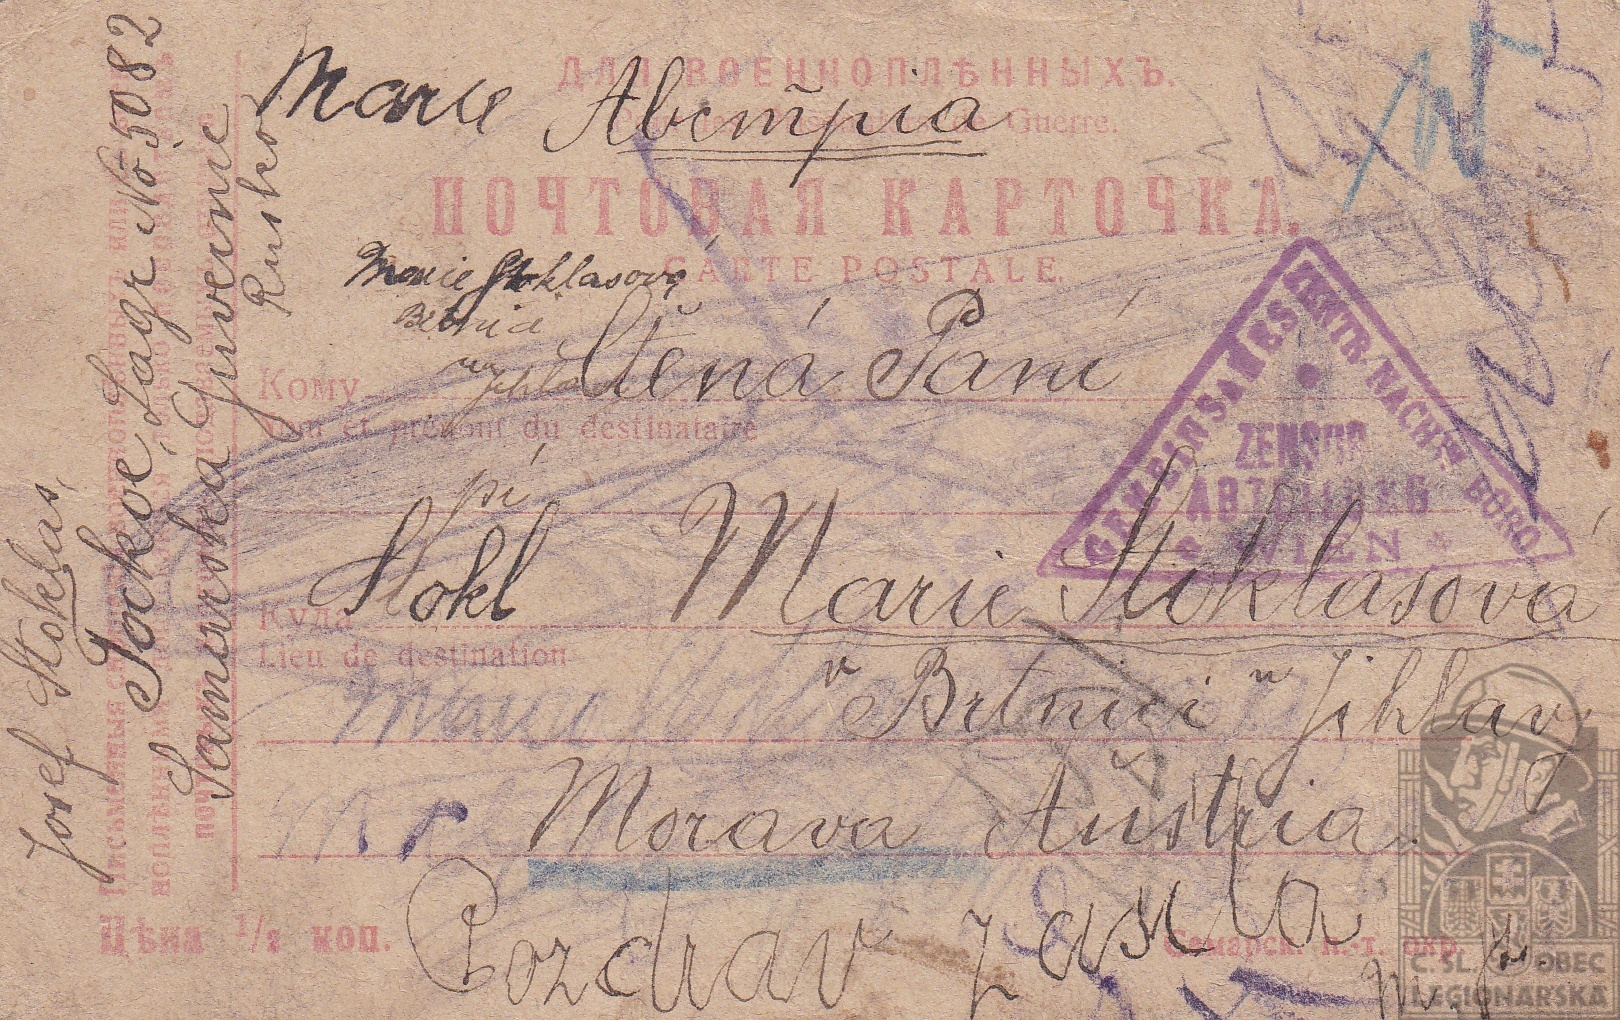 ДЛЯ ВОЕННОПЛѢННЫХЪ.
Marie Австрія
de Guerre.
ПОЧТОВАЯ КАРТОЧКА.
CARTE POSTALE.
Marie Stoklasová
Кому
Ctěná Paní
Nom et prénom du destinataire
pí
Stokl Marie Stoklasová
Куда
Lieu de destination
v Brtnici u Jihlavy
Morava Austria
Pozdrav zasila
Цѣна 1/2 коп.
Самарск. п.-т. окр.
Josef Stoklas,
No 5082
Samarska Guvernie
Rusko
GEMEINSAMES ZENTR. NACHW. BÜRO
ZENSUR
ABTEILUNG
WIEN
Č. SL. OBEC
LEGIONÁŘSKÁ